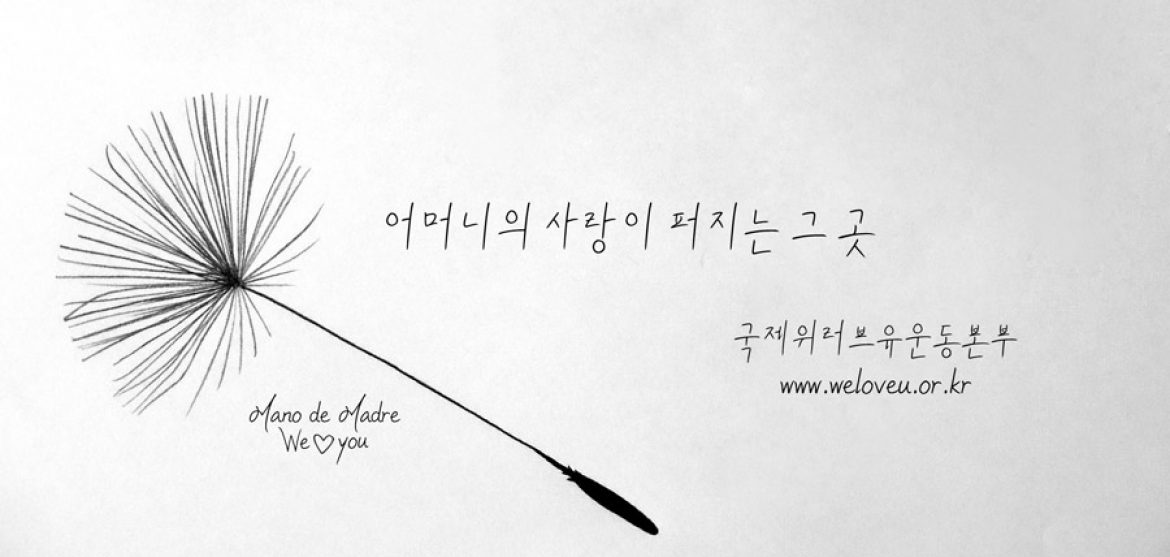 어머니의 사랑이 퍼지는 그 곳
국제위러브유운동본부
www.weloveu.or.kr
Mano de Madre
We♡you